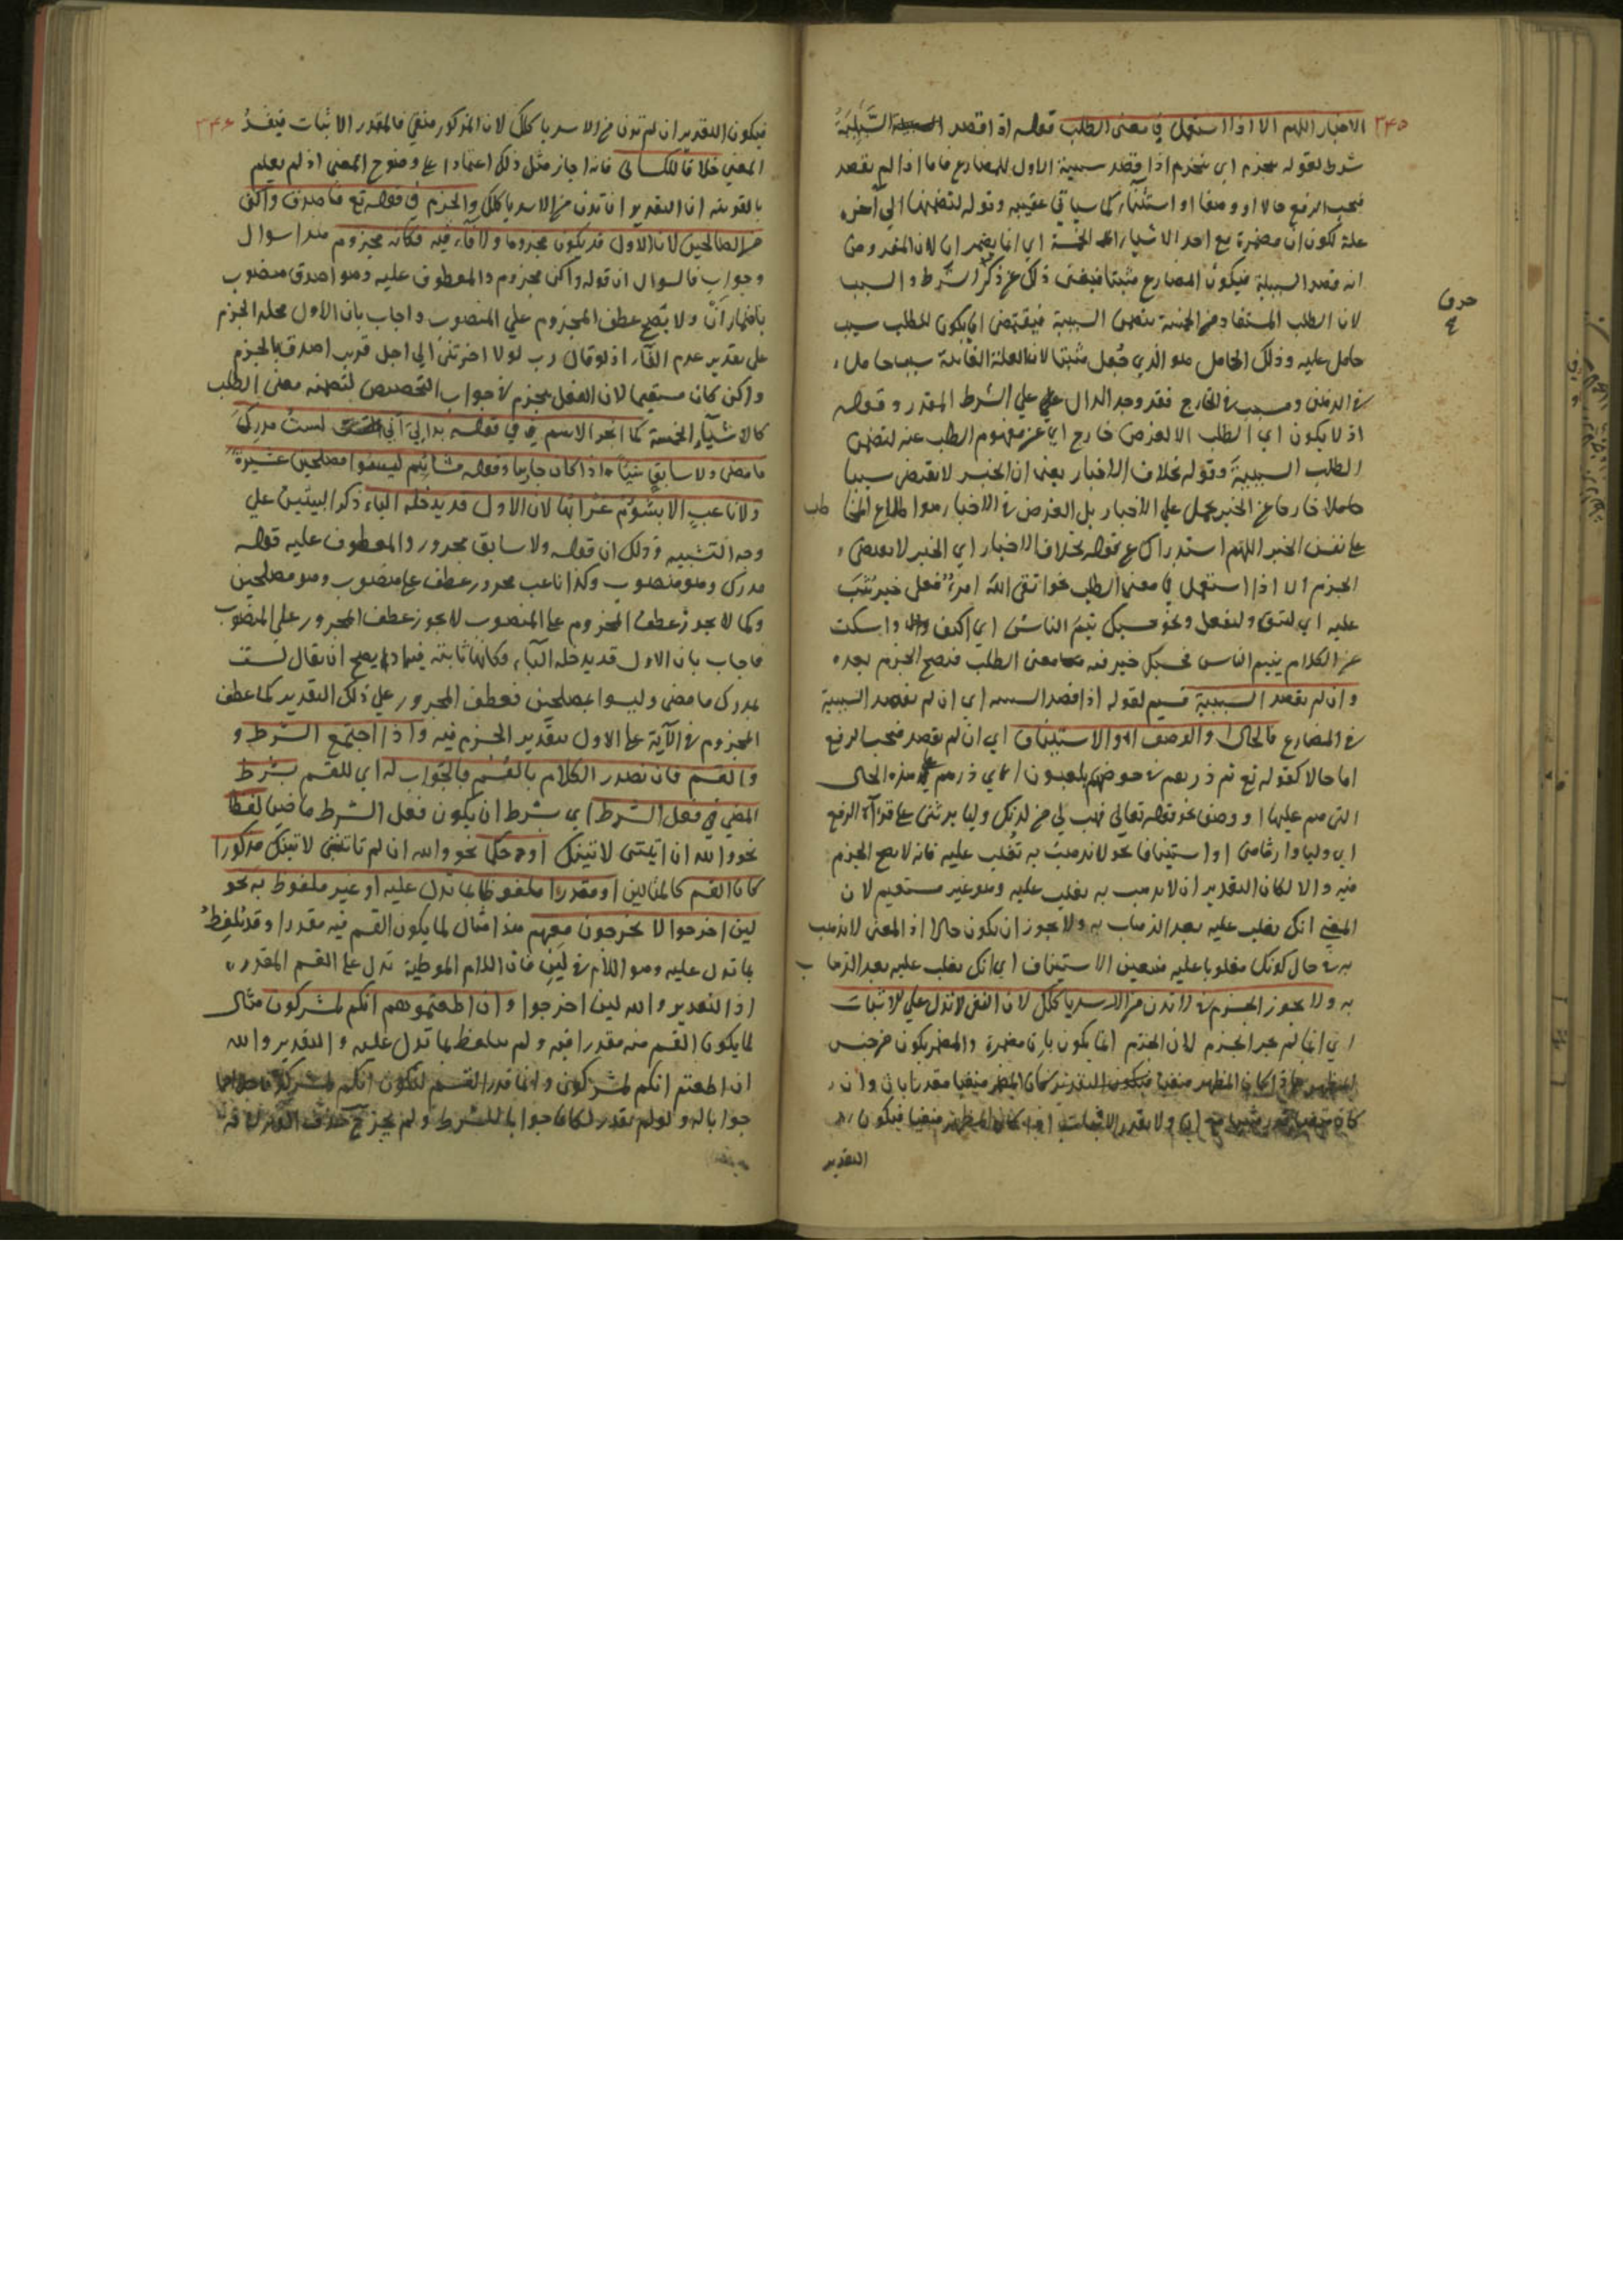 ٣٤٥
الاخبار اللهم الا اذا استعمل في معنى الطلب قوله اذا قصد السببية
شرط لقوله ينجزم اي ينجزم اذا قصد سببية الاول للمضارع فاما اذا لم يقصد
فيجب الرفع حالا او وصفا او استئنافا كما سياتي عقيبه وقوله لتضمنها الى آخره
علة لكون ان مضمرة مع احد الاشياء الخمسة اي انما يضمر ان لان المفروض
انه قصد السببية فيكون المضارع مثبتا فيغني ذلك عن ذكر الشرط والسبب
لان الطلب المستفاد من الخمسة يتضمن السببية فيقتضي ان يكون للطلب سبب
حامل عليه وذلك الحامل هو الذي جعل مثبتا لان العلة الغائية سبب حامل
في الذهن ومسبب في الخارج فقد وجد الدال على الشرط المقدر وقوله
اذ لا يكون اي الطلب الا لغرض خارج اي عن مفهوم الطلب عنه لتضمن
الطلب السببية وقوله بخلاف الاخبار يعني ان الخبر لا يقتضي سببا
حاملا خارجا عن الخبر يحمل على الاخبار بل الغرض في الاخبار هو اطلاع المخا طب
على نفس الخبر اللهم استدراك عن قوله بخلاف الاخبار اي الخبر لا يقتضي
الجزم الا اذا استعمل في معنى الطلب نحو اتقى الله امرؤ فعل خير يثب
عليه اي ليتق وليفعل ونحو حسبك ينم الناس اي اكفف واسكت
عن الكلام ينم الناس فحسبك خبر فيه معنى الطلب فيصح الجزم بعده
وان لم يقصد السببية قسيم لقوله اذا قصد السببية اي ان لم يقصد السببية
في المضارع فالحال او الوصف او الاستيناف اي ان لم يقصد فيجب الرفع
اما حالا كقوله تع ثم ذرهم في خوضهم يلعبون اي ذرهم على هذه الحال
التي هم عليها او وصفا نحو قوله تعالى فهب لي من لدنك وليا يرثني على قراءة الرفع
اي وليا وارثا مني او استينافا نحو لا تذهب به تغلب عليه فانه لا يصح الجزم
فيه والا لكان التقدير ان لا تذهب به تغلب عليه وهو غير مستقيم لان
المعنى انك تغلب عليه بعد الذهاب به ولا يجوز ان يكون حالا اذ المعنى لا تذهب
به في حال كونك مغلوبا عليه فتعين الاستيناف اي انك تغلب عليه بعد الذها ب
به ولا يجوز الجزم في لا تدن من الاسد ياكلك لان النفي لا تدل على الاثبات
اي انما لم يجز الجزم لان الجزم انما يكون بان مضمرة والمضمر يكون من جنس
المظهر فاذا كان المظهر منفيا
كان ولا يقدر الاثبات اذا كان المظهر منفيا فيكون
التقدير
حرف
٣٤٦
فيكون التقدير ان لم تدن من الاسد ياكلك لان المذكور منفي فالمقدر الاثبات فيفسد
المعنى خلافا للكسائي فانه اجاز مثل ذلك اعتمادا على وضوح المعنى اذ لم يعلم
بالقرينة ان التقدير ان تدن من الاسد ياكلك والجزم في قوله تع فاصدق واكن
من الصالحين لان الاول قد يكون مجزوما ولا فاء فيه فكانه مجزوم هذا سوال
وجواب فالسوال ان قوله واكن مجزوم والمعطوف عليه وهو اصدق منصوب
باضمار ان ولا يصح عطف المجزوم على المنصوب واجاب بان الاول محله الجزم
على تقدير عدم الفاء اذ لو قال رب لولا اخرتني الى اجل قريب اصدق بالجزم
واكن كان مستقيما لان الفعل ينجزم في جواب التحضيض لتضمنه معنى الطلب
كالاشياء الخمسة كما انجر الاسم في قوله بدا لي اني لست مدرك
ما مضى ولا سابق شيئا اذا كان جايئا وقوله مشائيم ليسوا مصلحين عشيرة
ولا ناعب الا بشؤم غرابها لان الاول قد يدخله الباء ذكر البيتين على
وجه التشبيه وذلك ان قوله ولا سابق مجرور والمعطوف عليه قوله
مدرك وهو منصوب وكذا ناعب مجرور عطف على منصوب وهو مصلحين
وكما لا يجوز عطف المجزوم على المنصوب لا يجوز عطف المجرور على المنصوب
فاجاب بان الاول قد يدخله الباء فكانها ثابتة فيه اذ يصح ان يقال لست
بمدرك ما مضى وليسوا بمصلحين فعطف المجرور على ذلك التقدير كما عطف
المجزوم في الآية على الاول بتقدير الجزم فيه واذا اجتمع الشرط و
والقسم فان تصدر الكلام بالقسم فالجواب له اي للقسم بشرط
المضي في فعل الشرط اي بشرط ان يكون فعل الشرط ماضيا لفظا
نحو والله ان اتيتني لاتينك او حكما نحو والله ان لم تاتني لاتينك مذكورا
كان القسم كالمثالين او مقدرا ملفوظا بما تدل عليه او غير ملفوظ به نحو
لين اخرجوا لا يخرجون معهم هذا مثال لما يكون القسم فيه مقدرا وقد تلفظ
بما تدل عليه وهو اللام في لين فان اللام الموطية تدل على القسم المقدر
اذ التقدير والله لين اخرجوا وان اطعتموهم انكم لمشركون مثال
لما يكون القسم فيه مقدرا فيه ولم يتلفظ بما تدل عليه والتقدير والله
ان اطعتم انكم لمشركون وانما قدر القسم لتكون انكم لمشركون
جوابا له ولو لم يقدر لكان جوابا للشرط ولم يجز حذف الفاء